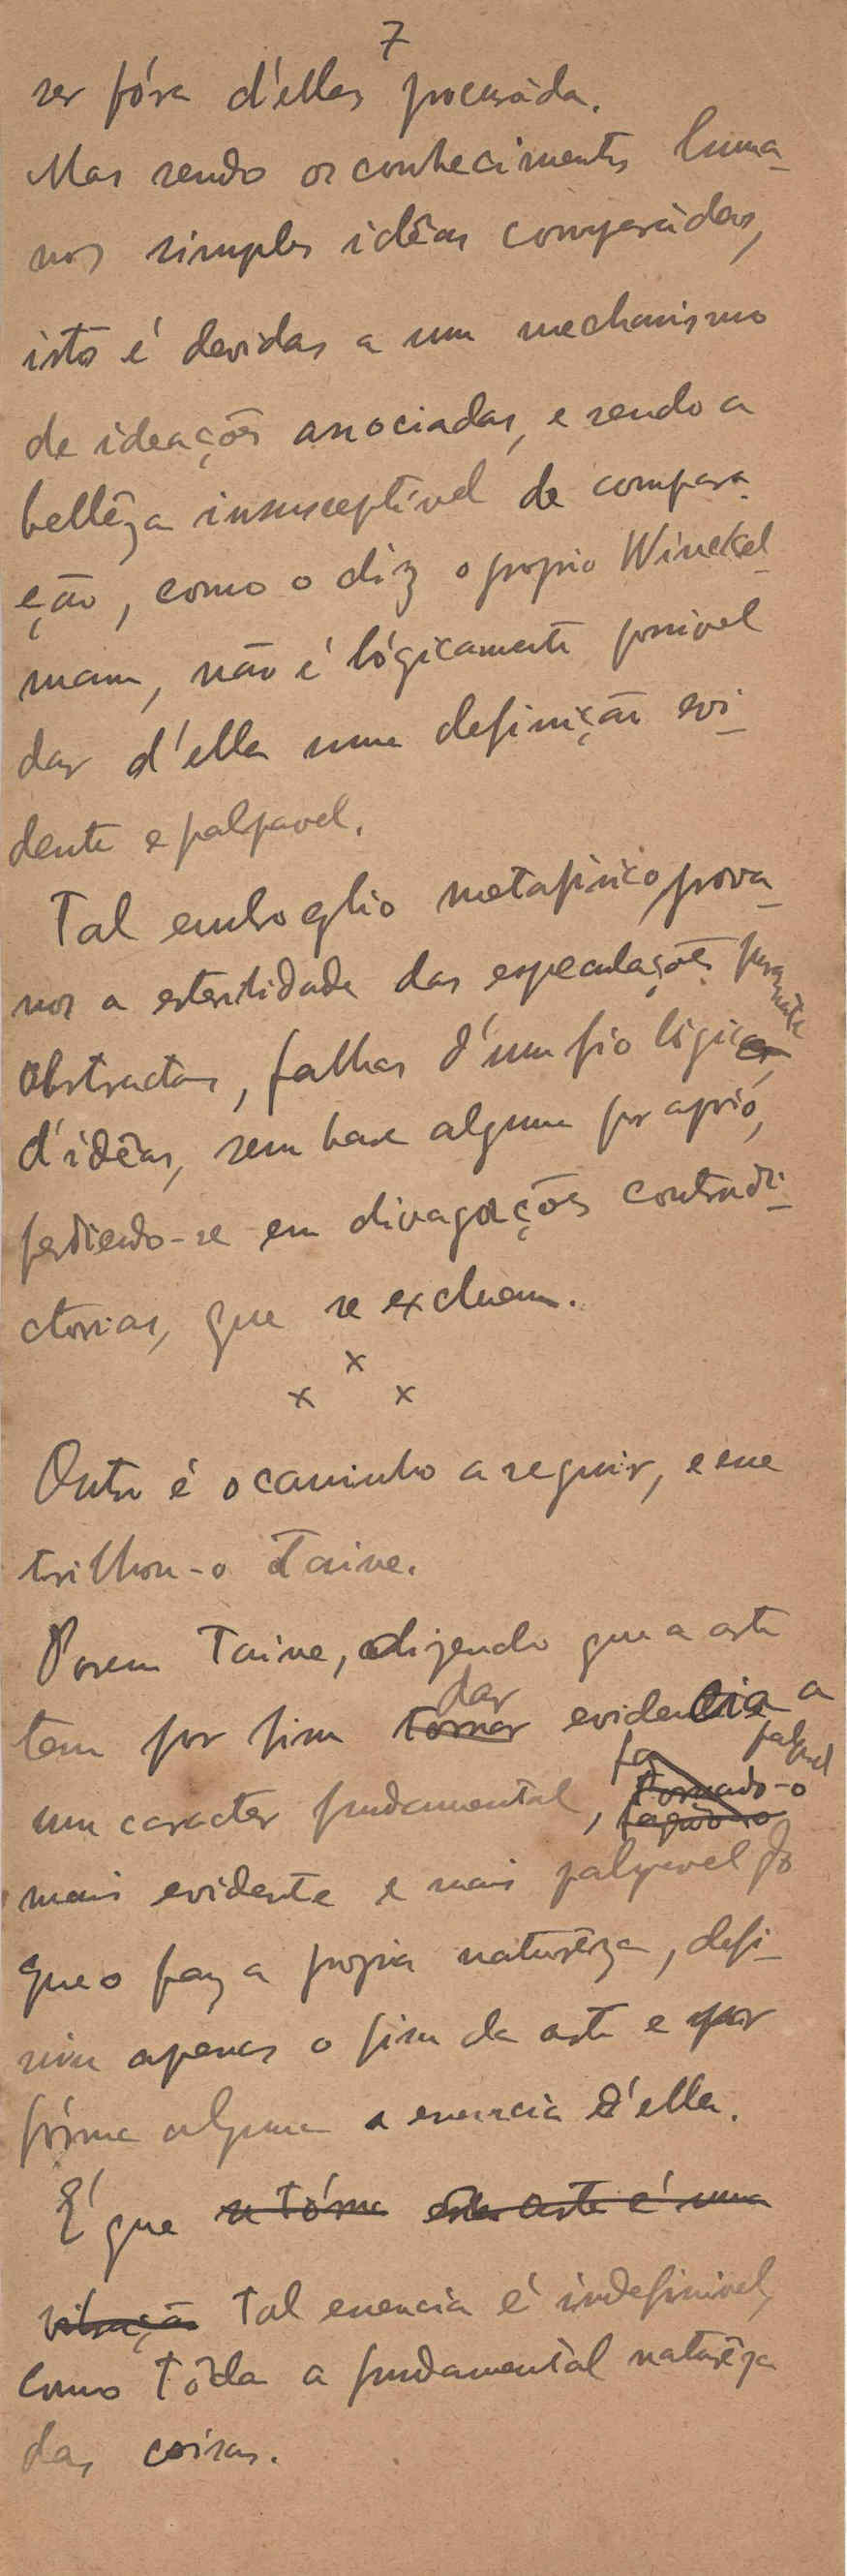 7
ser fóra d'ellas procuráda.
Mas sendo os conhecimentos huma-
nos simples idêas comparádas,
isto é devidas a um mechanismo
de ideações associadas, e sendo a
bellêza insusceptível de compara-
ção, como o diz o proprio Winckel-
mam, não é lógicamente possivel
dar d'ella uma definição evi-
dente e palpavel.
Tal embroglio metafisico prova-
nos a esterilidade das especulações puramente
abstractas, falhas d'um fio lógico
d'idêas, sem base alguma
perdendo-se em divagações contradi-
ctorias, que se excluem.
x
x x
Outro é o caminho a seguir, e
trilhou-o Taine.
Porem Taine, dizendo que a arte
dar
tem por fim tornar evidencia a
palpavel
um caracter fundamental, tornado-o
mais evidente e mais palpavel do
que o faz a propria naturêza, defi-
niu apenas o fim da arte e por
fórma alguma a essencia d'ella.
É que se tórna arte é uma
vibração tal essencia é indefinivel,
como tôda a fundamental naturêza
das coisas.